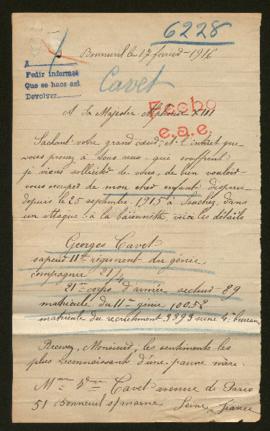 6228
Bonneuil le 17 février 1916
A
Pedir informes
Que se haga así
Devolver
Cavet
A Sa Majesté Alphonse XIII
Fecho
e.a.e.
Sachant votre grand cœur, et l'intérêt que
vous prenez à tous ceux qui souffrent
je viens solliciter de vous, de bien vouloir
vous occuper de mon cher enfant disparu
depuis le 25 septembre 1915 à Souchez dans
une attaque à la baïonnette voici les détails
Georges Cavet
sapeur 11e régiment du génie
compagnie 21/1
21e corps d'armée secteur 89
matricule du 11e génie 10658
matricule du recrutement 3393 seine 4e bureau
Recevez, Monsieur, les sentiments les
plus reconnaissants d'une pauvre mère.
Mme Vve Cavet avenue de Paris
51 Bonneuil s/ marne Seine France